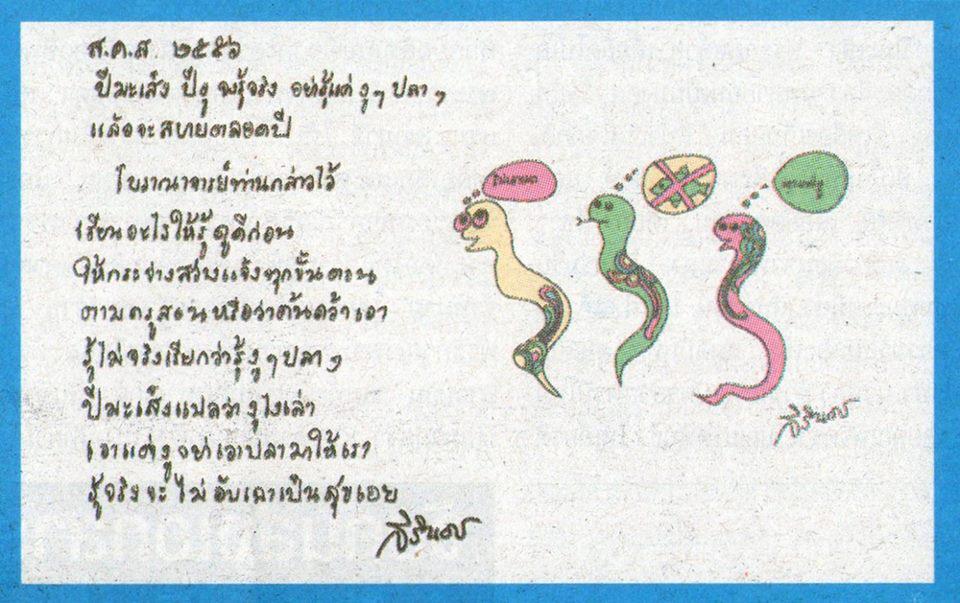 ส.ค.ส ๒๕๕๖
ปีมะเส็ง ปีงู จงรู้จริง อย่ารู้แค่ งูๆ ปลาๆ
แล้วจะสบายตลอดปี
โบราณาจารย์ท่านกล่าวไว้
เรียนอะไรให้รู้ดูดีก่อน
ให้กระจ่างสว่างแจ้งทุกขั้นตอน
ตามครูสอนหรือว่าค้นคว้าเอา
รู้ไม่จริงเรียกว่ารู้งูๆปลาๆ
ปีมะเส็งแปลว่างูไงเล่า
เอาแต่งูอย่าเอาปลามาให้เรา
รู้จริงจะไม่อับเฉาเป็นสุขเอย
สิรินธร
สิรินธร